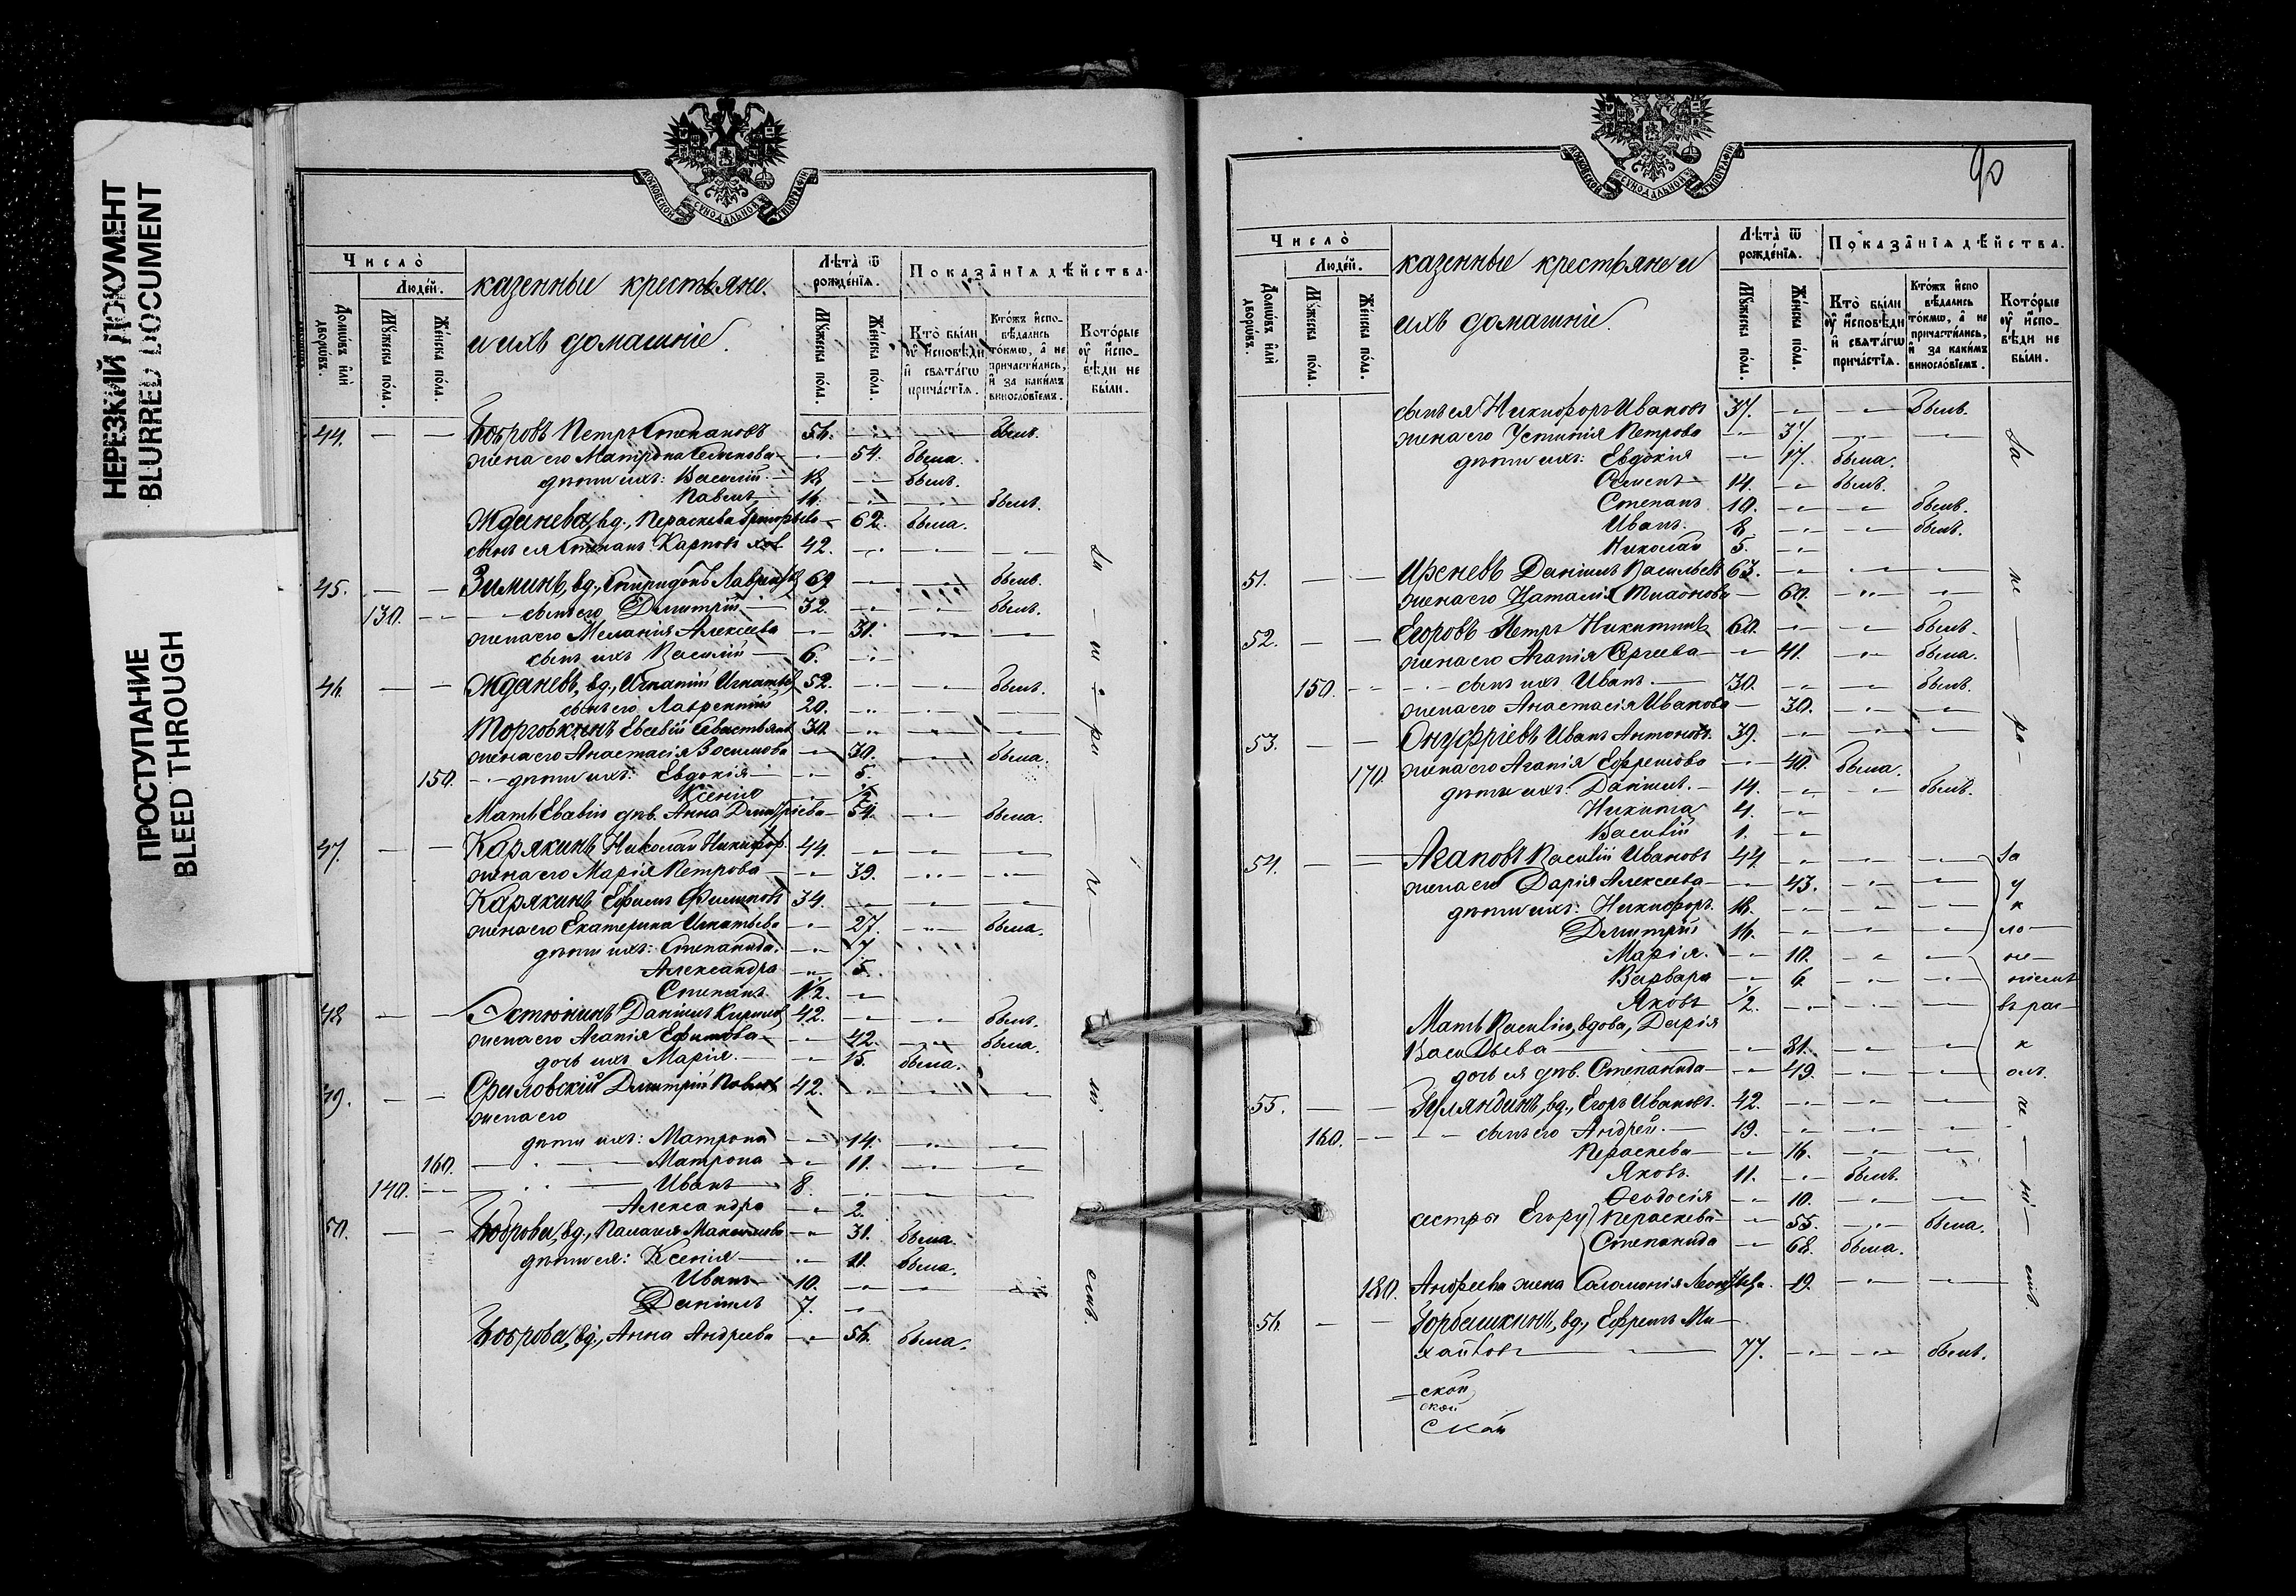 НЕРЕЗКИЙ ДОКУМЕНТ
BLURRED DOCUMENT
ПРОСТУПАНИЕ
BLEED THROUGH
МОСКОВСКОЙ СѴНОДАЛЬНОЙ ТИПОГРАФІИ
Число̀
Людей.
Домѡвъ илѝ дворѡвъ.
Мꙋжеска пола.
Женска пола.
казенные крестьяне
и ихъ домашніе.
Лѣта̀ ѿ рожденїѧ.
Мꙋжеска пола.
Женска пола.
Показанїѧ дѣйства.
Кто̀ были ᲂу҆ исповѣди и свѧтагѡ причастїѧ.
Ктожъ исповѣдались токмѡ, а не причастились, и за какимъ винословїемъ.
Которые ᲂу҆ исповѣди не были.
44. — — Бобровъ Петръ Степановъ 56. был.
жена его Матрона 54. была.
дѣти ихъ: Василій 18 былъ.
Павелъ 16. былъ.
Жданева, вд., Параскева Григорьева 62. была.
сынъ ея Степанъ Карповъ 42.
45. — — Зиминъ, вд., Спиридонъ Лаврент. 69 былъ.
130. сынъ его Димитрій 32. былъ.
жена его Меланія Алексеева 31.
сынъ ихъ Василій 6.
46. — — Жданевъ, вд., Игнатій Игнатьев 52. былъ.
сынъ его Лаврентій 20.
Торговкинъ Евсевій Севастьян. 30.
жена его Анастасія Зосимова 30. была.
150. дѣти ихъ: Евдокія 5.
Ксенія
Мать Евсевія дѣв. Анна Димитріева 54. была.
47. — — Карякинъ Николай Никифор. 44.
жена его Марія Петрова 39.
Карякинъ Ефимъ Филиповъ 34.
жена его Екатерина Игнатьева 27. была.
дѣти ихъ: Степанида 7
Александра 5.
Степанъ 1/2.
48 — — Устюнинъ Даніилъ Кирилов 42. былъ.
жена его Агапія Ефимова 42. была.
дочь ихъ Марія 15. была.
49. — — Фриловскій Димитрій Павлов 42.
жена его
дѣти ихъ: Матрона 14.
160. Матрона 11.
140. Иванъ 8.
Александра 2.
50. — — Боброва, вд., Палагія Максимова 31. была.
дѣти ея: Ксенія 11. была.
Иванъ 10.
Даніилъ 7.
Боброва, вд., Анна Андреева 56. была.
МОСКОВСКОЙ СѴНОДАЛЬНОЙ ТИПОГРАФІИ
90
Число̀
Людей.
Домѡвъ илѝ дворѡвъ.
Мꙋжеска пола.
Женска пола.
казенные крестьяне и
ихъ домашніе.
Лѣта̀ ѿ рожденїѧ.
Мꙋжеска пола.
Женска пола.
Показанїѧ дѣйства.
Кто̀ были ᲂу҆ исповѣди и свѧтагѡ причастїѧ.
Ктожъ исповѣдались токмѡ, а не причастились, и за какимъ винословїемъ.
Которые ᲂу҆ исповѣди не были.
сынъ ея Никифоръ Ивановъ 37. былъ.
жена его Устинія Петрова 37.
дѣти ихъ: Евдокія 17. была.
Семенъ 14. былъ.
Степанъ 10. былъ.
Иванъ. 8 былъ.
Николай 5.
51. — — Даніилъ Васильевъ 63.
жена его Наталія 60.
52. — — Егоровъ Петръ Никитинъ 60. былъ.
жена его Агапія Сергеева 41. была.
150. сынъ ихъ Иванъ 30. былъ.
жена его Анастасія Иванова 30.
53. — — Онуфріевъ Иванъ Антоновъ 39.
170. жена его Агапія Ефремова 40. была.
дѣти ихъ: Даніилъ 14. былъ.
Никита 4.
Василій 1.
54. — — Агаповъ Василій Ивановъ 44. За
жена его Дарія Алексеева 43. у
дѣти ихъ: Никифоръ 18. к
Димитрій 16. ло
Марія. 10. не
Варвара 6. ніемъ
Яковъ 1/2. въ рас
Мать Василію, вдова, Дарія
Васильева 81. к
дочь ея дѣв. Степанида 49. олъ.
55. — — Гуляндинъ, вд., Егоръ Ивановъ. 42.
160. сынъ его Андрей 19.
Параскева 16.
Яковъ 11. былъ.
Ѳеодосія 10.
сестры Егору Параскева 55. была.
Степанида 68. была.
180. Андреева жена Соломонія Леонтьева 19.
56. — — Горбашкинъ, вд., Ефремъ Ми-
хайловъ 77. былъ.
ской
ской
ской